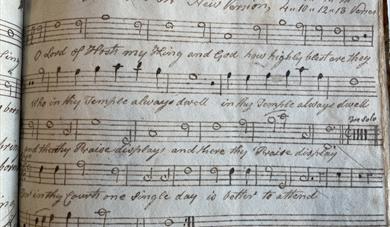 New Version 4 10 11 12 & 13 Verses
O Lord of Hosts my King and God how highly blest are they
Who in thy Temple always dwell in thy Temple always dwell
Solo
and there thy Praise display and there thy Praise display
in thy Courts one single day is better to attend